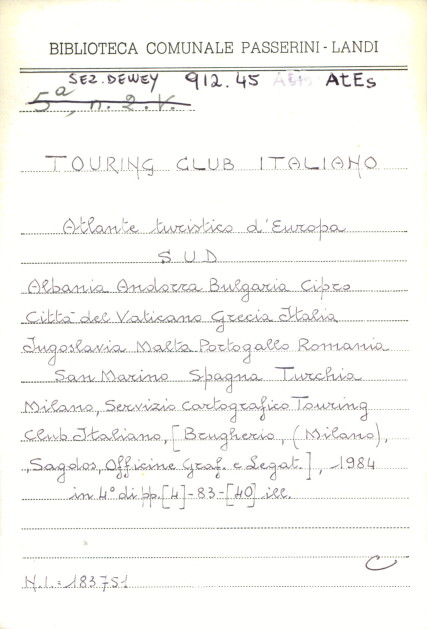 BIBLIOTECA COMUNALE PASSERINI - LANDI
SEZ. DEWEY 912.45 AtEs
5a, n. 2. V.
TOURING CLUB ITALIANO
Atlante turistico d'Europa
SUD
Albania Andorra Bulgaria Cipro
Città del Vaticano Grecia Italia
Jugoslavia Malta Portogallo Romania
San Marino Spagna Turchia
Milano, Servizio Cartografico Touring
Club Italiano, [Brugherio, (Milano),
Sagdos, Officine Graf. e Legat.], 1984
in 4° di pp. [4]-83-[40] ill.
C
N.I.= 183751